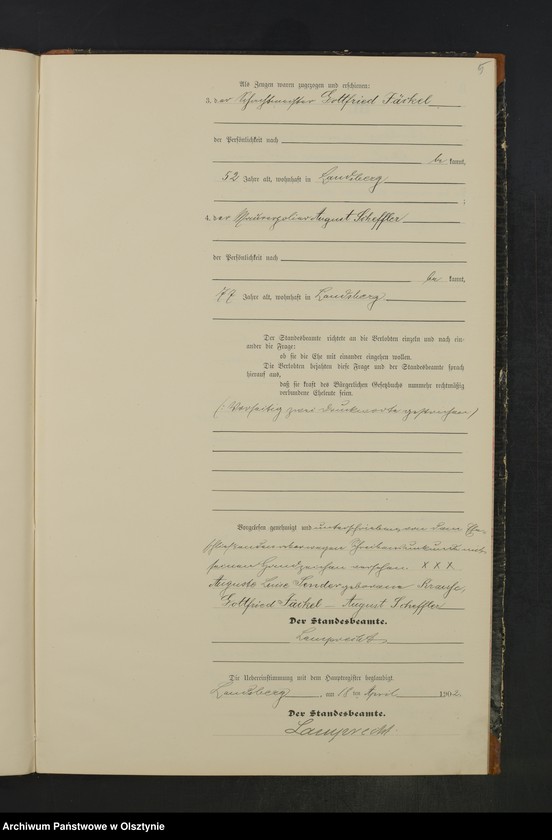 5
Als Zeugen waren zugezogen und erschienen:
3. der Schachtmeister Gottfried Jäckel
der Persönlichkeit nach
be kannt,
52 Jahre alt, wohnhaft in Landsberg
;
4. der Maurerpolier August Scheffler
der Persönlichkeit nach
be kannt,
77 Jahre alt, wohnhaft in Landsberg
Der Standesbeamte richtete an die Verlobten einzeln und nach ein-
ander die Frage:
ob sie die Ehe mit einander eingehen wollen.
Die Verlobten bejahten diese Frage und der Standesbeamte sprach
hierauf aus,
daß sie kraft des Bürgerlichen Gesetzbuchs nunmehr rechtmäßig
verbundene Eheleute seien.
(Vorseitig zwei Druckworte gestrichen)
Vorgelesen, genehmigt und unterschrieben, von dem Ehe-
schließenden aber wegen Schreibensunkunde mit
seinem Handzeichen versehen. X X X
Auguste Sender geborene Krause,
Gottfried Jäckel – August Scheffler
Der Standesbeamte.
Lamprecht
Die Uebereinstimmung mit dem Hauptregister beglaubigt
Landsberg, am 18 ten April 1902
Der Standesbeamte.
Lamprecht
Archiwum Państwowe w Olsztynie